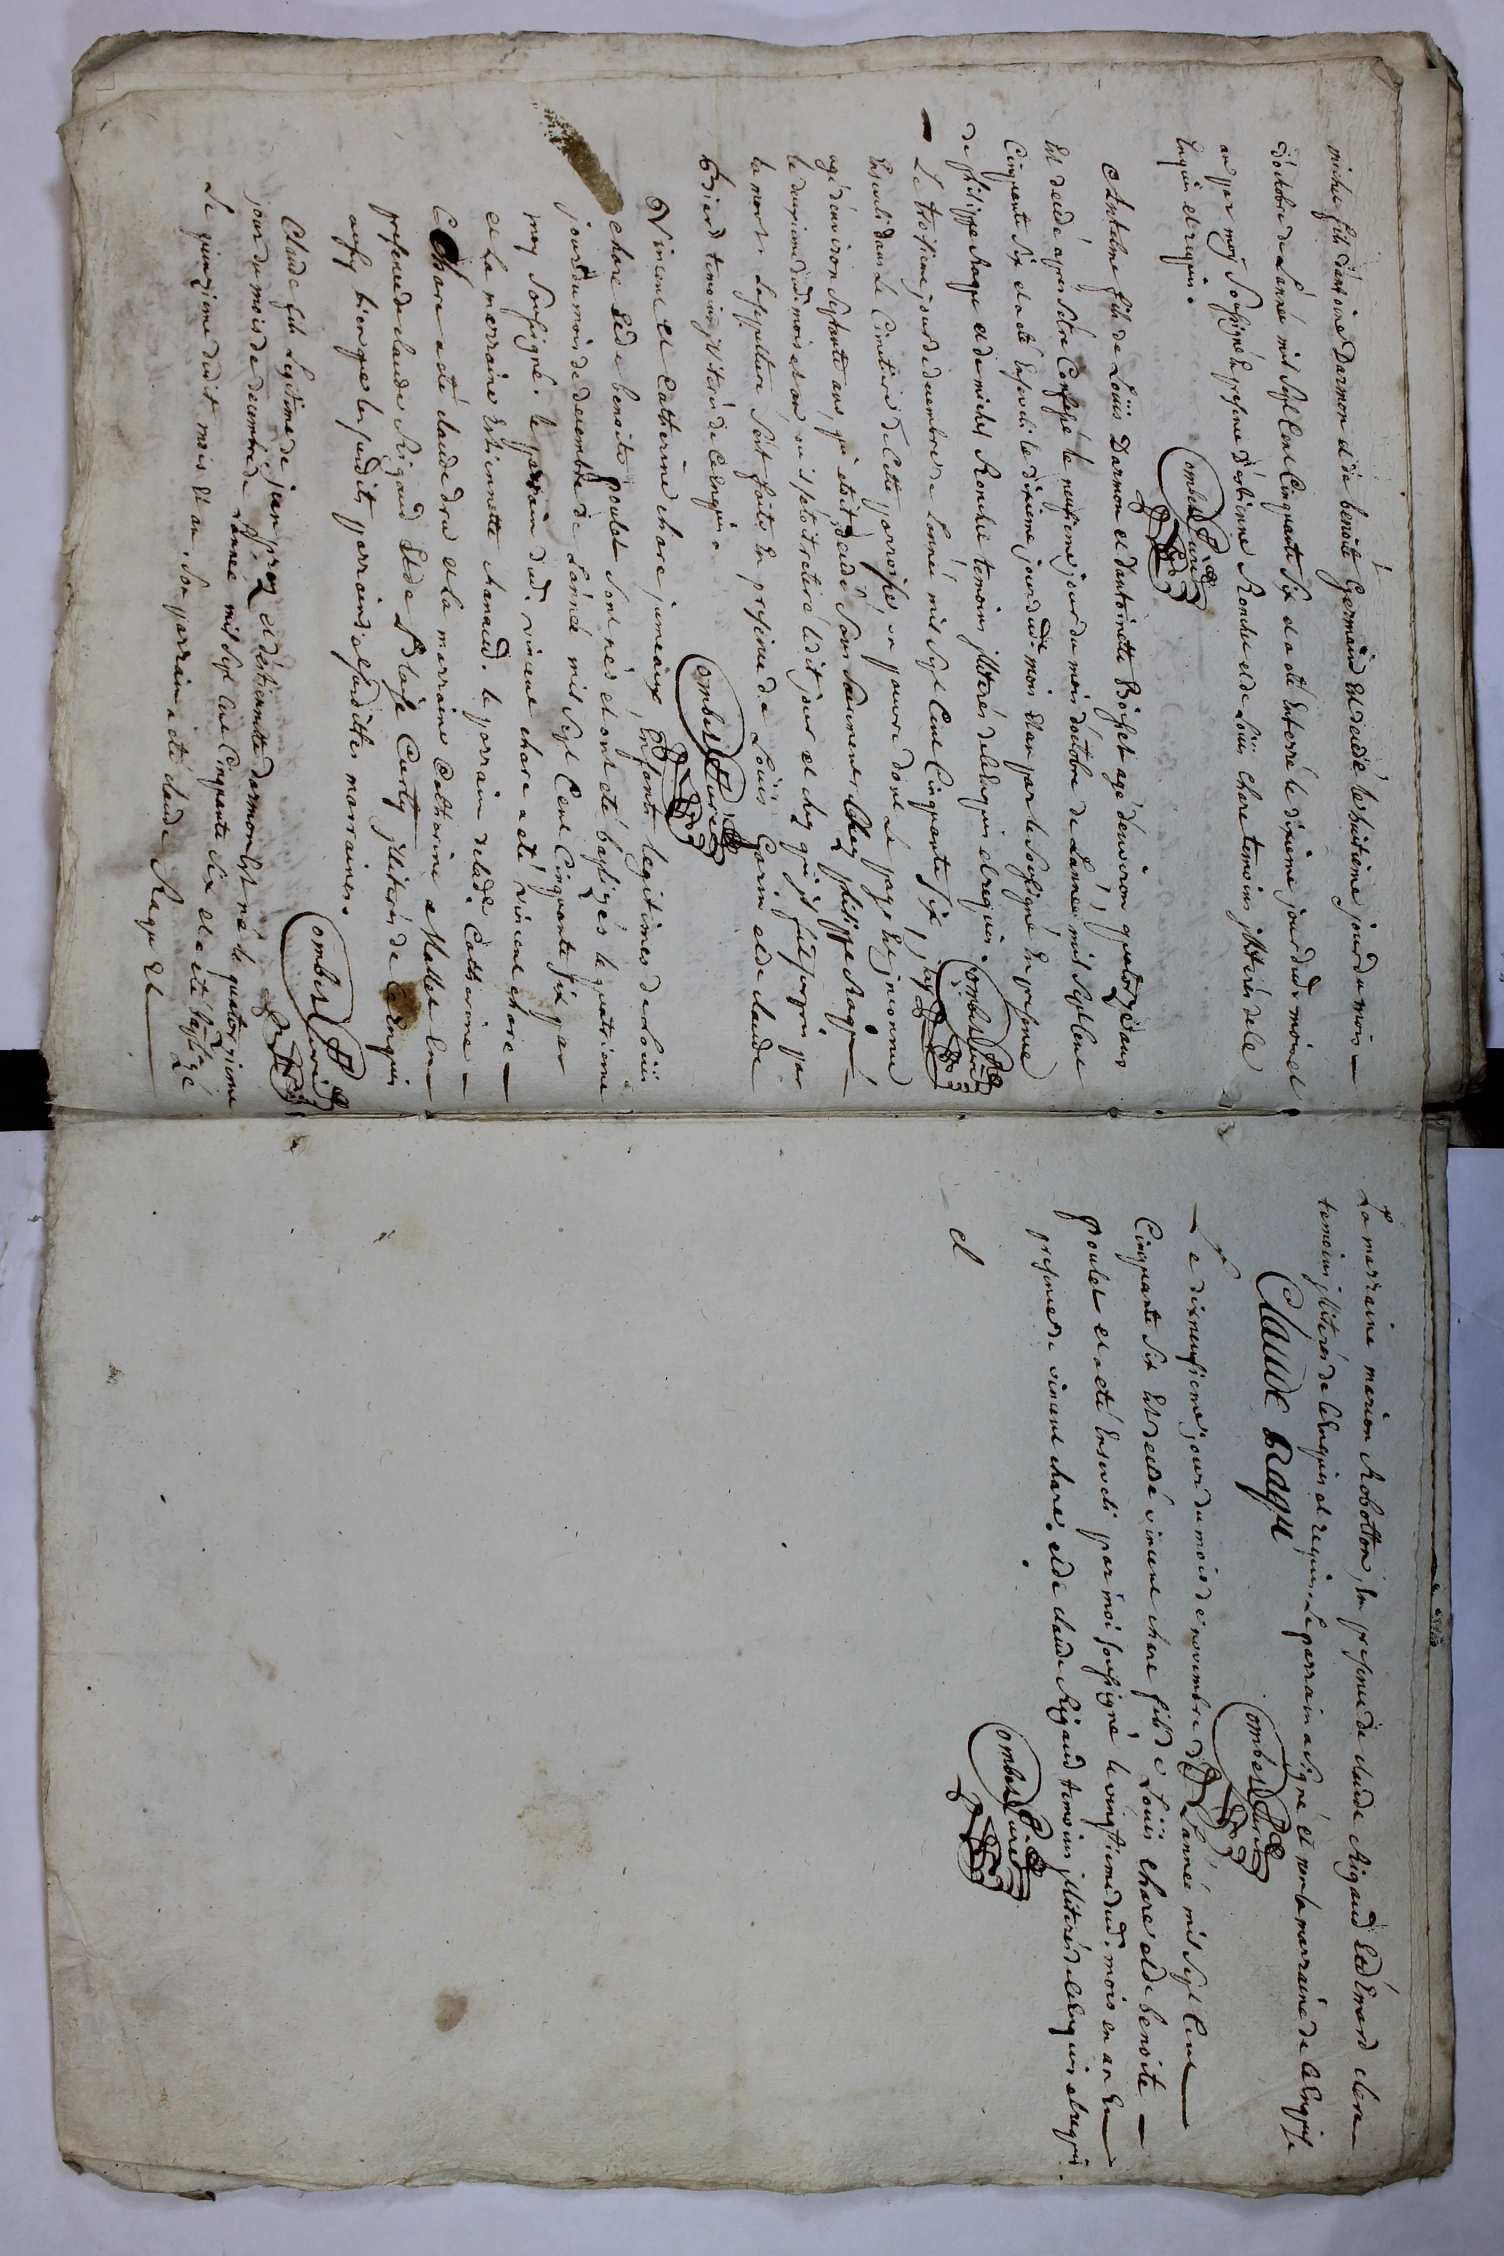 michel fils d'antoine Darmon et de benoite Germain est decedé le huitieme jour du mois
d'octobre de Lannée mil sept Cent Cinquante six et a eté Enterré le dixieme jour dudt mois et
an par moy soussigné En presence d'etienne Ronchet et de Loüis chare temoins jlliterés de ce
Enquis et requis.
Combet Curé
Anthelme fils de Loüis Darmon et d'antoinette Bosset agé d'environ quatorze ans
Est decedé apres s'etre Confessé le neufieme jour du mois d'octobre de Lannée mil sept Cent
Cinquante six et a eté Enseveli le dixieme jour dudt mois Et an par le soussigné En presence
de philippe Raque et de michel Ronchet temoins jlliterés de ce Enquis et requis.
Combet Curé
Le troisieme jour de decembre de Lannée mil sept Cent Cinquante six, j'ay
Enseveli dans Le Cimetiere de Cette parroisse, un pauvre dont Le pays Est jnconnu
agé d'environ septante ans, qui etoit decedé sans sacrement Chez philippe Raque
le deuxieme dudt mois et an ou il s'etoit retiré ledit jour et chez qui il fut surpris par
la mort. La sepulture s'est faite En presence de Loüis Garin et de claude
temoins jlliterés de ce Enquis.
Combet Curé
Vincent et Catherine chare jumeaux, Enfants Legitimes de Loüis
chare Et de benoite poulet sont nés et ont eté baptizés le quatrieme
jour du mois de decembre de Lannée mil sept Cent Cinquante six par
moy soussigné. le parrain dudt vincent chare a eté vincent chare
et La marraine Estiennette chanaud. le parrain de ladte Catherine
Chare a eté claude dru et La marraine Catherine Mallet En
presence de claude Rigaud Et de Blaise Curty jlliterés de ce Enquis
aussy bien que les susdits parrains et susdittes marraines.
Combet Curé
Claude fils Legitime de jean proz et d'estiennette darmon Est né le quatorzieme
jour du mois de decembre de Lannee mil sept Cent Cinquante six et a eté baptizé
Le quinzieme dudit mois Et an. son parrain a eté claude Raque Et
La marraine marion Robollon, En presence de claude Rigaud Et d'Emard chere
temoins jlliterés de ce Enquis et requis. Le parrain a signé et non la marraine de ce Enquise
Claude Raque
Combet Curé
Le dixneufieme jour du mois de novembre de Lannée mil sept Cent
Cinquante six Est decedé vincent chare fils de Loüis chare et de benoite
poulet et a eté Enseveli par moi soussigné le vingtieme dudt mois en an En
presence de vincent chare et de claude Rigaud temoins jlliterés de ce Enquis et requis.
Combet Curé
et